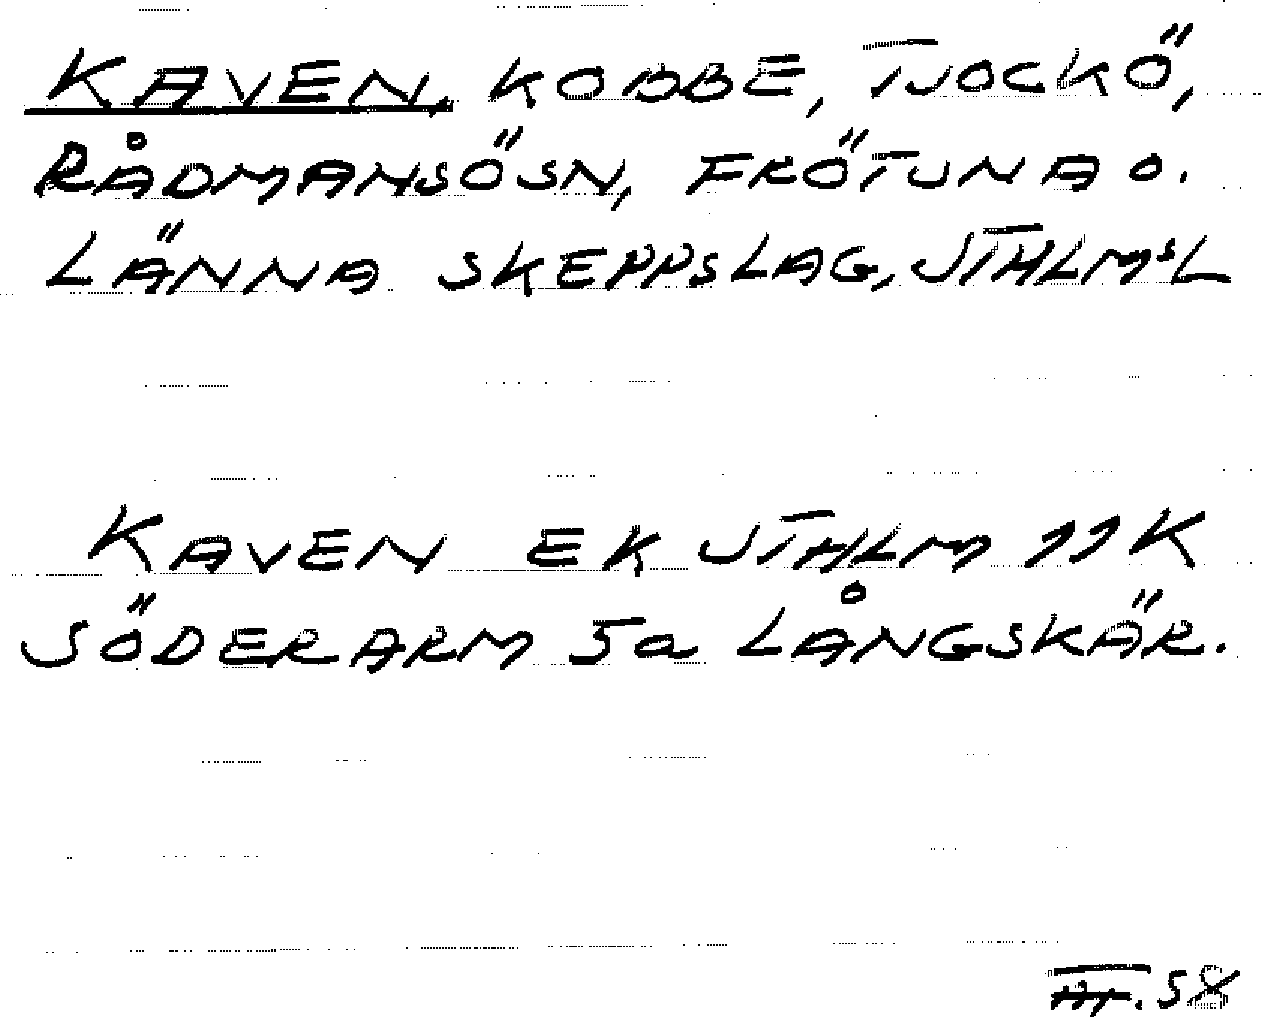 KAVEN, KOBBE, TJOCKÖ,
RÅDMANSÖSN, FRÖTUNA O.
LÄNNA SKEPPSLAG, STHLMSL
KAVEN EK STHLM 11 K
SÖDERARM 5a LÅNGSKÄR.
58